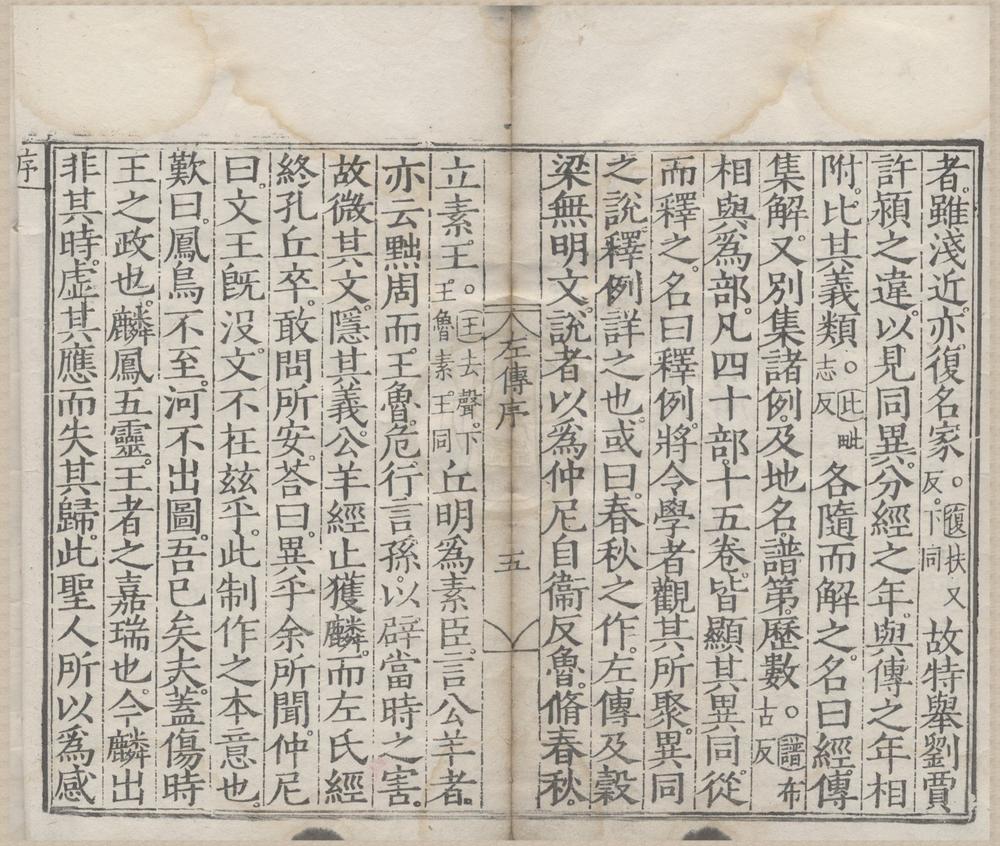 者。雖淺近。亦復名家。復扶又反。下同故特舉劉賈
許潁之違。以見同異。分經之年。與傳之年相
附。比其義類。比毗志反各隨而解之。名曰經傳
集解。又別集諸例。及地名。譜第。歷數。譜布古反
相與爲部。凡四十部。十五卷。皆顯其異同。從
而釋之。名曰釋例。將令學者觀其所聚。異同
之說。釋例詳之也。或曰。春秋之作。左傳及穀
梁無明文。說者以爲仲尼自衞反魯。脩春秋。
左傳序 五
立素王。王去聲。下王魯素王同丘明爲素臣。言公羊者。
亦云黜周而王魯。危行言孫。以辟當時之害。
故微其文。隱其義。公羊經止獲麟。而左氏經
終孔丘卒。敢問所安。荅曰。異乎余所聞。仲尼
曰。文王旣沒。文不在茲乎。此制作之本意也。
歎曰。鳳鳥不至。河不出圖。吾已矣夫。蓋傷時
王之政也。麟鳳五靈。王者之嘉瑞也。今麟出
非其時。虛其應而失其歸。此聖人所以爲感
序